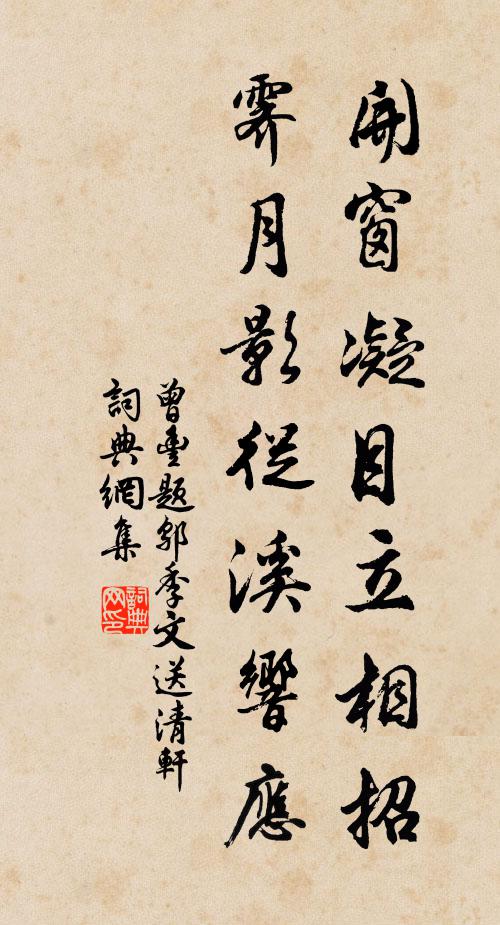 開窗凝目立相招
霽月影從溪響應
曾豐題鄒季文送清軒
詞典網集
詞典
网印